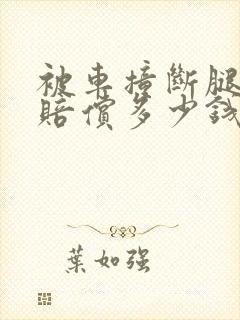 被車撞斷腿
賠償多少錢
葉如强